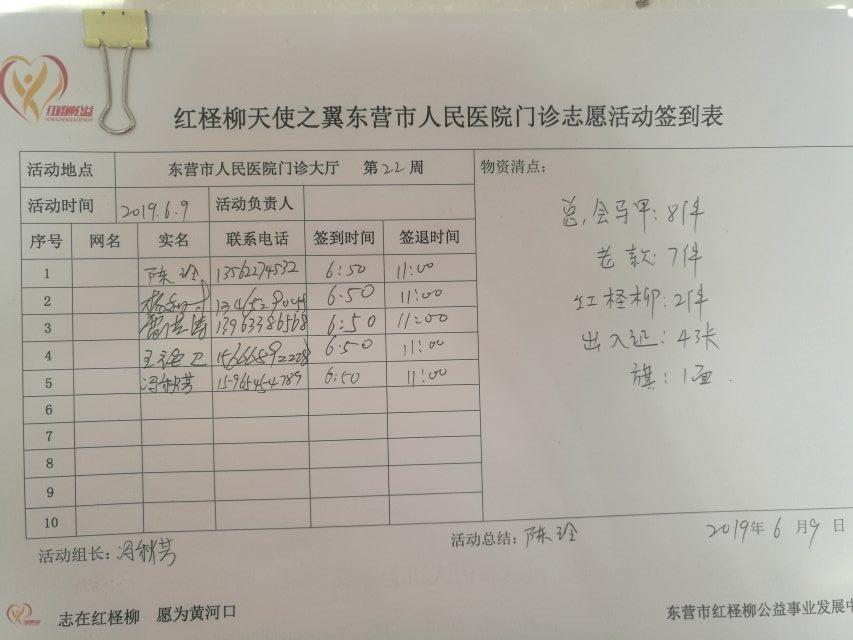 红柽柳公益
红柽柳天使之翼东营市人民医院门诊志愿活动签到表
活动地点 东营市人民医院门诊大厅 第22周
物资清点：
活动时间 2019.6.9 活动负责人
总会马甲：8件
序号 网名 实名 联系电话 签到时间 签退时间
老款：7件
1 陈玲 13562274532 6:50 11:00
2 6:50 11:00
红柽柳：2件
3 13963386568 6:50 11:00
出入证：43张
4 王 卫 15666592228 6:50 11:00
5 冯秋芳 15965454789 6:50 11:00
旗：1面.
6
7
8
9
10
活动组长：冯秋芳
活动总结：陈玲
2019年6月9日
志在红柽柳 愿为黄河口
东营市红柽柳公益事业发展中